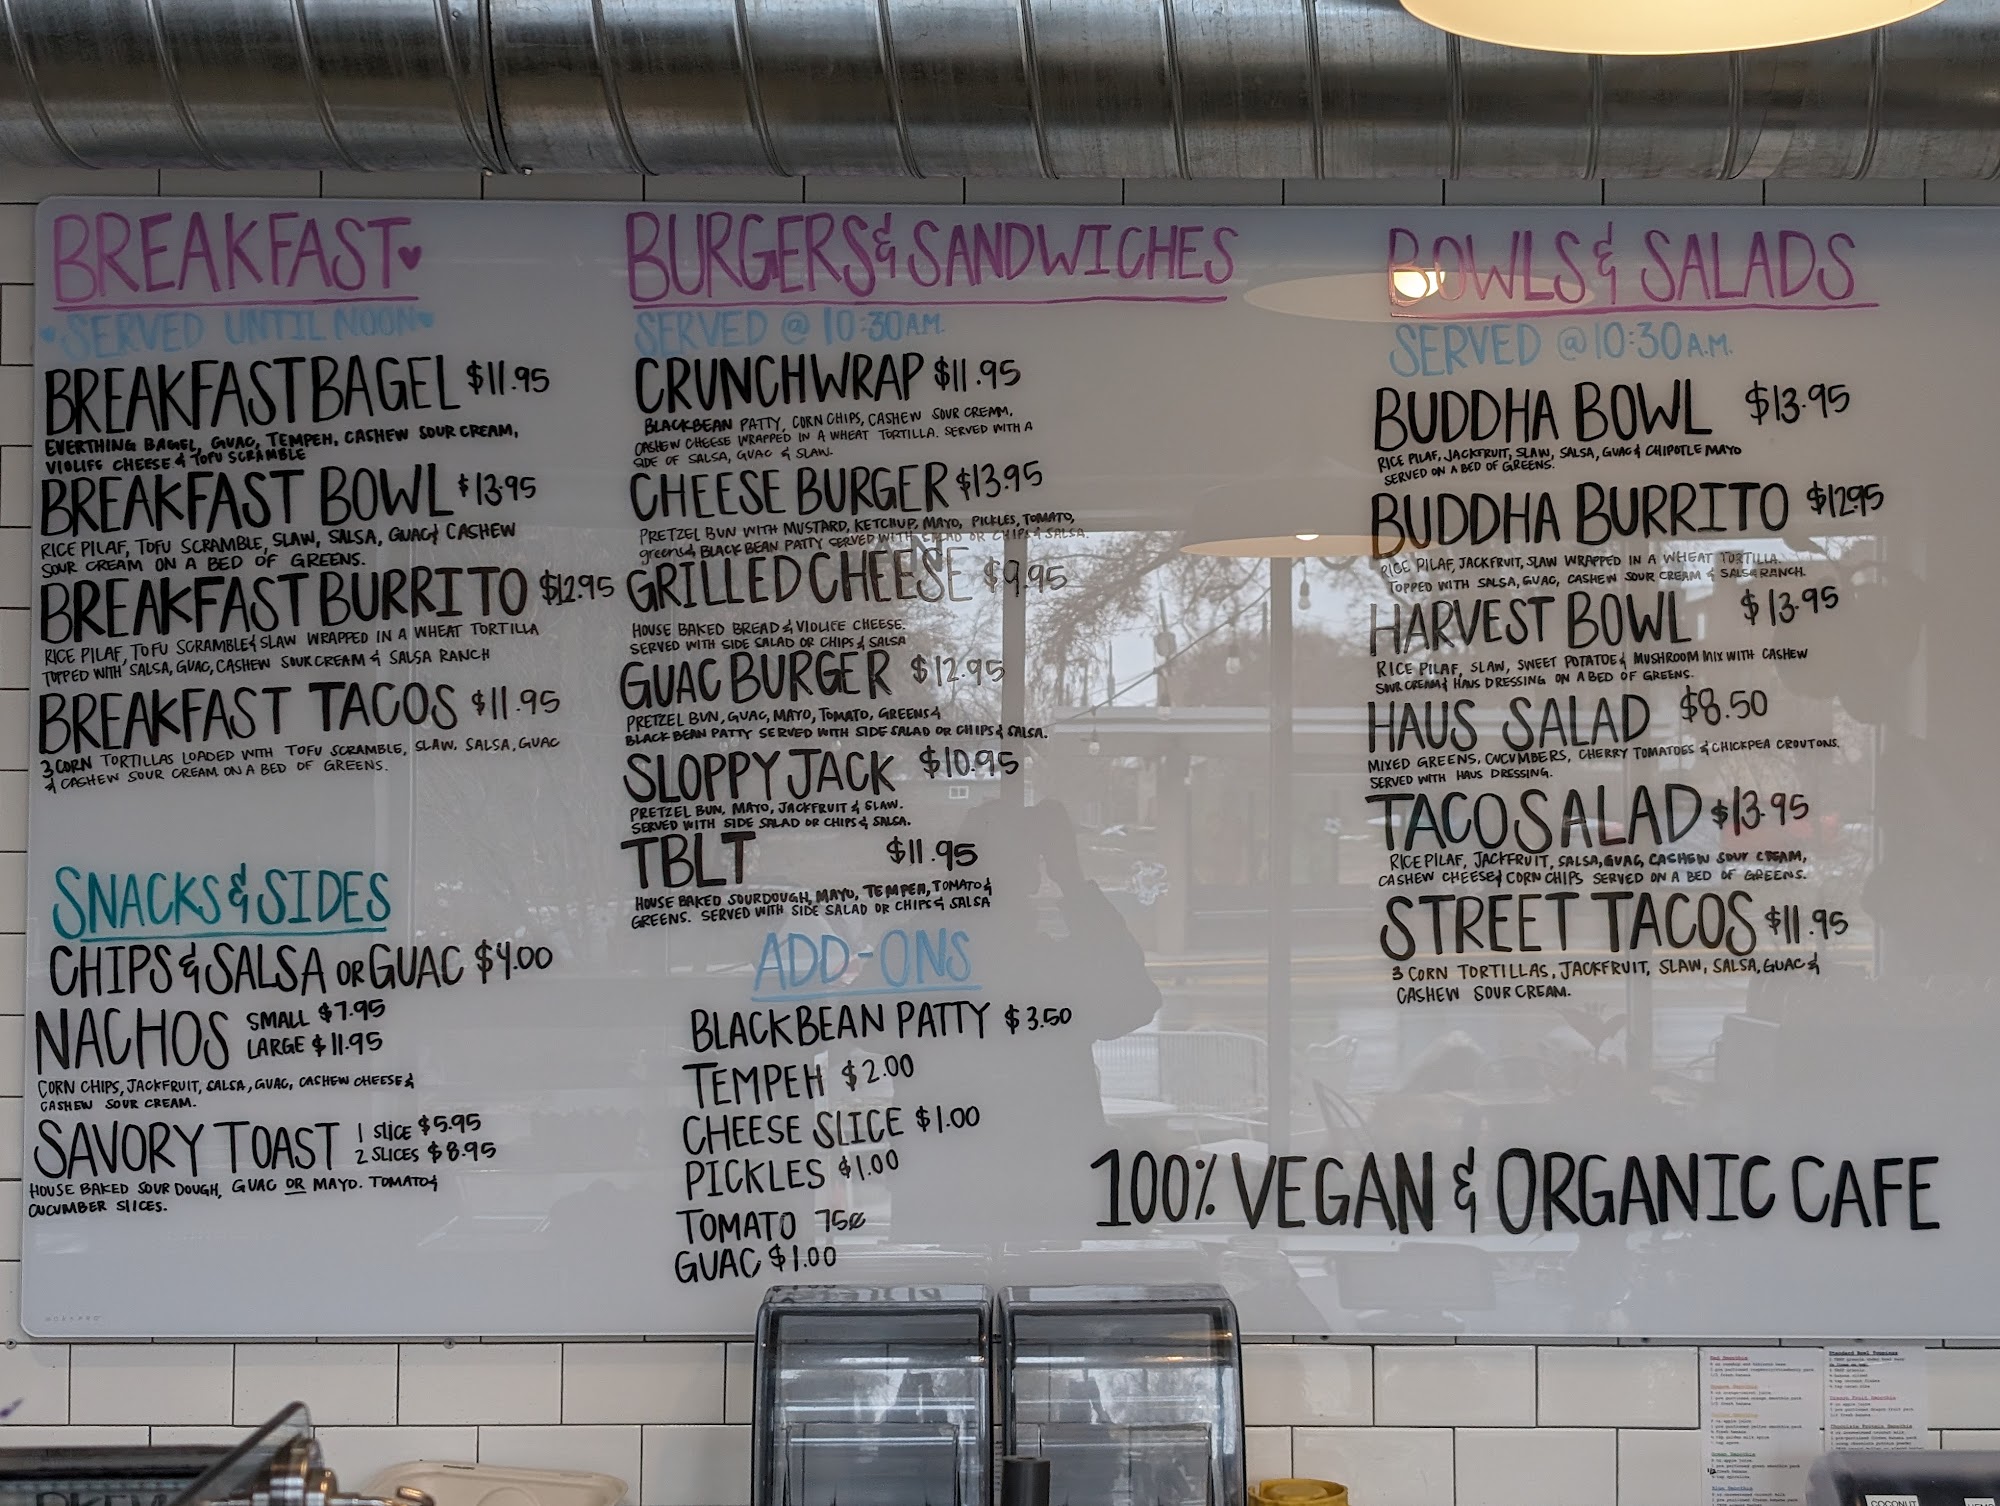 BREAKFAST♥
♥SERVED UNTIL NOON♥
BREAKFAST BAGEL $11.95
EVERTHING BAGEL, GUAC, TEMPEH, CASHEW SOUR CREAM,
VIOLIFE CHEESE & TOFU SCRAMBLE
BREAKFAST BOWL $13.95
RICE PILAF, TOFU SCRAMBLE, SLAW, SALSA, GUAC & CASHEW
SOUR CREAM ON A BED OF GREENS.
BREAKFAST BURRITO $12.95
RICE PILAF, TOFU SCRAMBLE & SLAW WRAPPED IN A WHEAT TORTILLA
TOPPED WITH SALSA, GUAC, CASHEW SOUR CREAM & SALSA RANCH
BREAKFAST TACOS $11.95
3 CORN TORTILLAS LOADED WITH TOFU SCRAMBLE, SLAW, SALSA, GUAC
& CASHEW SOUR CREAM ON A BED OF GREENS.
SNACKS & SIDES
CHIPS & SALSA OR GUAC $4.00
NACHOS SMALL $7.95
LARGE $11.95
CORN CHIPS, JACKFRUIT, SALSA, GUAC, CASHEW CHEESE &
CASHEW SOUR CREAM.
SAVORY TOAST 1 SLICE $5.95
2 SLICES $8.95
HOUSE BAKED SOUR DOUGH, GUAC OR MAYO. TOMATO &
CUCUMBER SLICES.
BURGERS & SANDWICHES
SERVED @ 10:30 A.M.
CRUNCHWRAP $11.95
BLACKBEAN PATTY, CORN CHIPS, CASHEW SOUR CREAM,
CASHEW CHEESE WRAPPED IN A WHEAT TORTILLA. SERVED WITH A
SIDE OF SALSA, GUAC & SLAW.
CHEESE BURGER $13.95
PRETZEL BUN WITH MUSTARD, KETCHUP, MAYO, PICKLES, TOMATO,
greens & BLACK BEAN PATTY SERVED WITH SALAD OR CHIPS & SALSA.
GRILLED CHEESE $9.95
HOUSE BAKED BREAD & VIOLIFE CHEESE.
SERVED WITH SIDE SALAD OR CHIPS & SALSA
GUAC BURGER $12.95
PRETZEL BUN, GUAC, MAYO, TOMATO, GREENS &
BLACK BEAN PATTY SERVED WITH SIDE SALAD OR CHIPS & SALSA.
SLOPPY JACK $10.95
PRETZEL BUN, MAYO, JACKFRUIT & SLAW.
SERVED WITH SIDE SALAD OR CHIPS & SALSA.
TBLT $11.95
HOUSE BAKED SOURDOUGH, MAYO, TEMPEH, TOMATO &
GREENS. SERVED WITH SIDE SALAD OR CHIPS & SALSA
ADD-ONS
BLACKBEAN PATTY $3.50
TEMPEH $2.00
CHEESE SLICE $1.00
PICKLES $1.00
TOMATO 75¢
GUAC $1.00
BOWLS & SALADS
SERVED @ 10:30 A.M.
BUDDHA BOWL $13.95
RICE PILAF, JACKFRUIT, SLAW, SALSA, GUAC & CHIPOTLE MAYO
SERVED ON A BED OF GREENS.
BUDDHA BURRITO $12.95
RICE PILAF, JACKFRUIT, SLAW WRAPPED IN A WHEAT TORTILLA.
TOPPED WITH SALSA, GUAC, CASHEW SOUR CREAM & SALSA RANCH.
HARVEST BOWL $13.95
RICE PILAF, SLAW, SWEET POTATOE & MUSHROOM MIX WITH CASHEW
SOUR CREAM & HAUS DRESSING ON A BED OF GREENS.
HAUS SALAD $8.50
MIXED GREENS, CUCUMBERS, CHERRY TOMATOES & CHICKPEA CROUTONS.
SERVED WITH HAUS DRESSING.
TACO SALAD $13.95
RICE PILAF, JACKFRUIT, SALSA, GUAC, CASHEW SOUR CREAM,
CASHEW CHEESE & CORN CHIPS SERVED ON A BED OF GREENS.
STREET TACOS $11.95
3 CORN TORTILLAS, JACKFRUIT, SLAW, SALSA, GUAC &
CASHEW SOUR CREAM.
100% VEGAN & ORGANIC CAFE
COCONUT